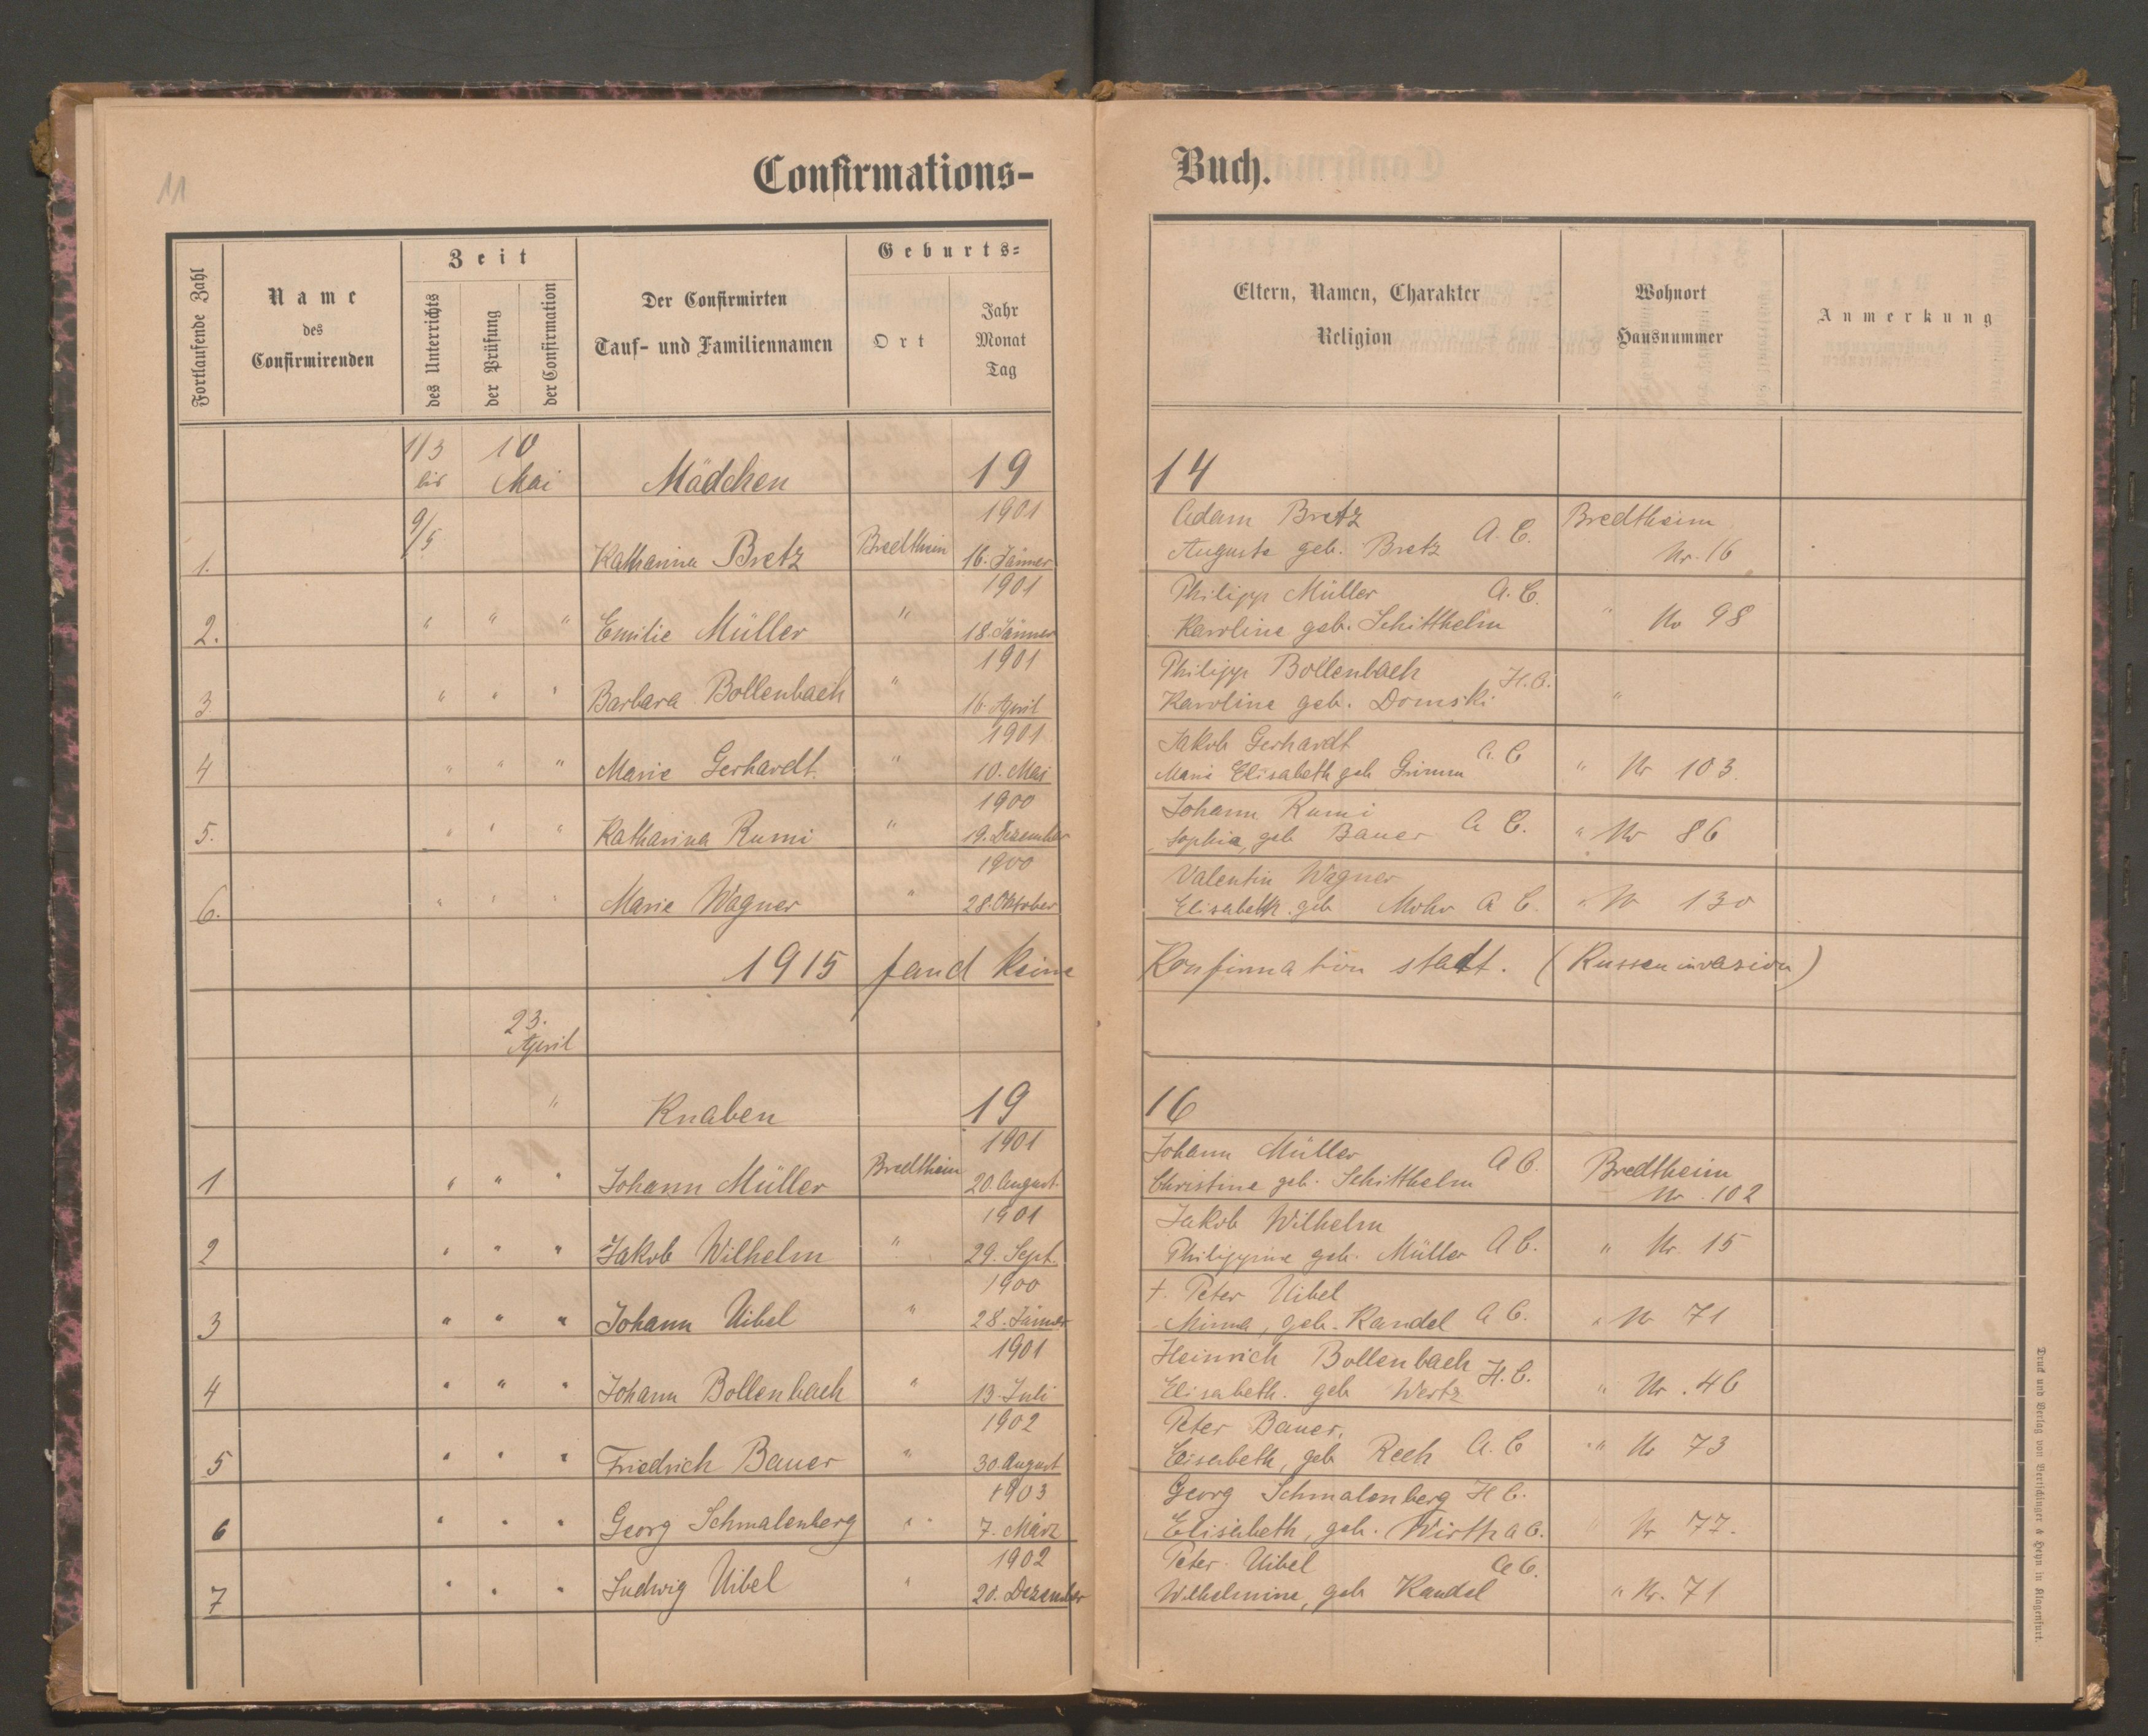 11
Confirmations-
Buch.
Fortlaufende Zahl
Name
des
Confirmirenden
Zeit
des Unterrichts
der Prüfung
der Confirmation
Der Confirmirten
Tauf- und Familiennamen
Geburts-
Ort
Jahr
Monat
Tag
Eltern, Namen, Charakter
Religion
Wohnort
Hausnummer
Anmerkung
1/3 bis 9/5
10 Mai
Mädchen 19 14
1901
1. Katharina Bretz Bredtheim 16. Jänner
Adam Bretz
Auguste geb. Bretz A. C.
Bredtheim
Nr. 16
1901
2. " " " Emilie Müller " 18. Jänner
Philipp Müller A. C.
Karoline geb. Schitthelm " No 98
1901
3 " " " Barbara Bollenbach " 16. April
Philipp Bollenbach
Karoline geb. Domski H. C. "
1901
4 " " " Marie Gerhardt " 10. Mai
Jakob Gerhardt
Marie Elisabeth geb Grimm A. C " Nr 103.
1900
5. " " " Katharina Rumi " 19. Dezember
Johann Rumi
Sophia, geb Bauer A C. " Nr 86
1900
6. " " " Marie Wagner " 28. Oktober
Valentin Wagner
Elisabeth geb Mohr A C. " Nr 130
1915 fand keine Konfirmation stadt. (Russeninvasion)
23.
April
" Knaben 19 16
1901
1 " " " Johann Müller Bredtheim 20. August
Johann Müller
Christine geb. Schitthelm A C.
Bredtheim
Nr. 102
1901
2 " " " Jakob Wilhelm " 29. Sept.
Jakob Wilhelm
Philippine geb. Müller A C. " Nr. 15
1900
3 " " " Johann Uibel " 28. Jänner
†. Peter Uibel
Minna, geb. Kandel A C. " Nr 71
1901
4 " " " Johann Bollenbach " 13. Juli
Heinrich Bollenbach
Elisabeth. geb Wertz H. C. " Nr. 46
1902
5 " " " Friedrich Bauer " 30. August
Peter Bauer,
Elisabeth, geb Rech A. C " Nr 73
1903
6 " " " Georg Schmalenberg " 7. März
Georg Schmalenberg H C.
Elisabeth, geb. Wirth A C. " Nr 77.
1902
7 " " " Ludwig Uibel " 20. Dezember
Peter Uibel A C.
Wilhelmine, geb Kandel " Nr. 71
Druck und Verlag von Bertschinger & Heyn in Klagenfurt.